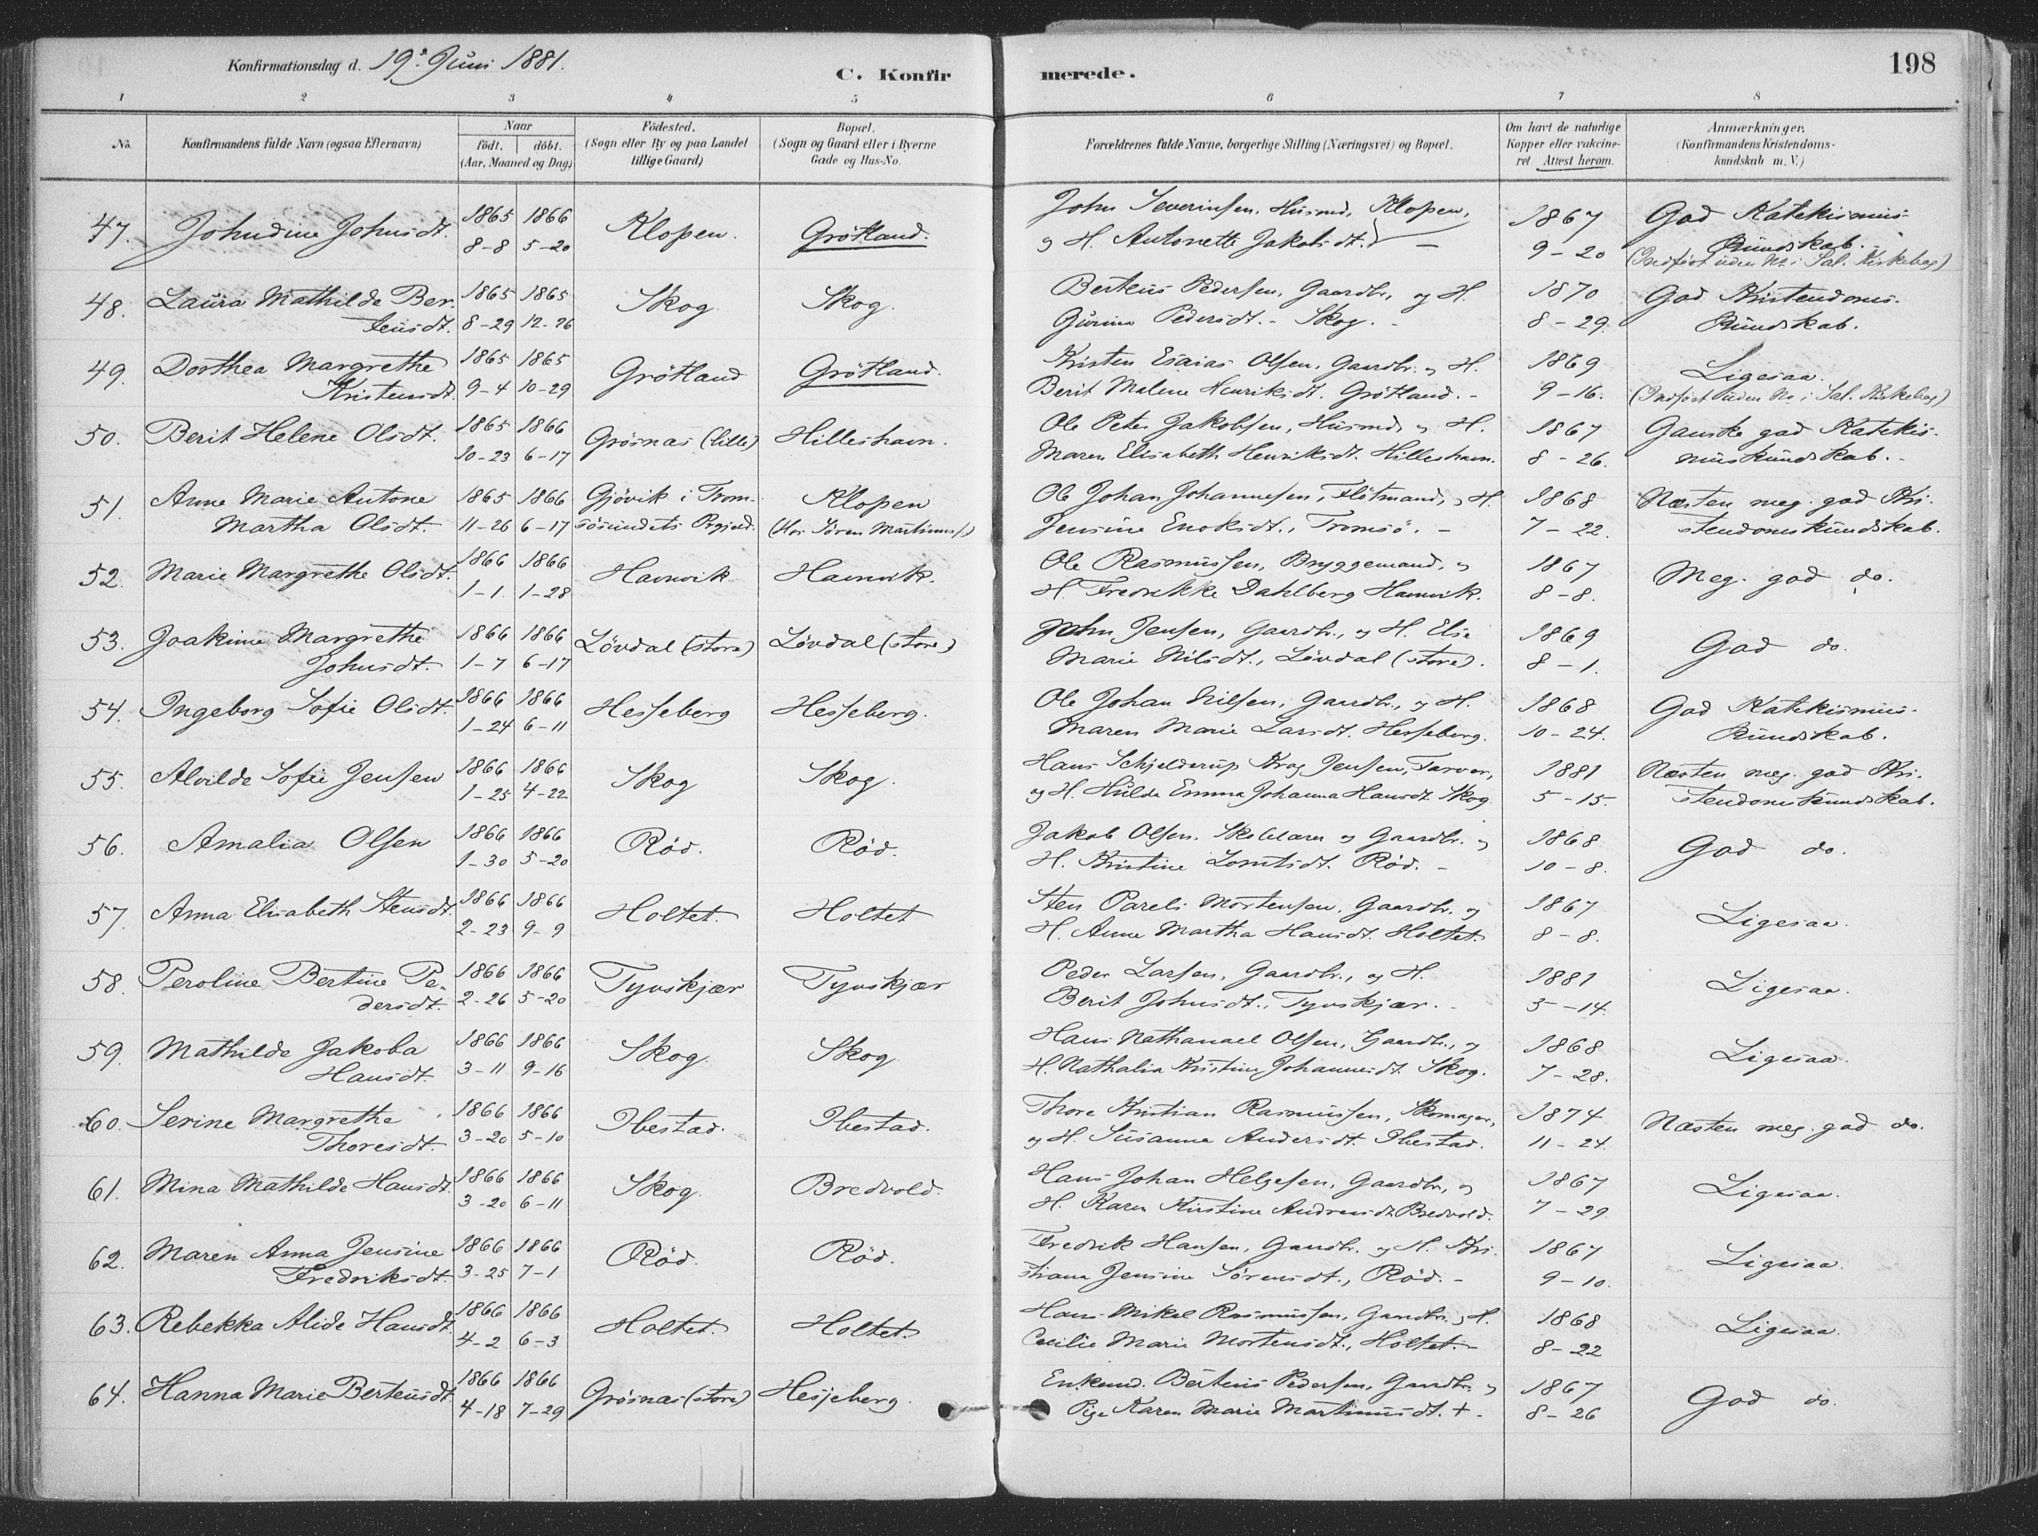 Konfirmationsdag d. 19de Juni 1881.
C. Konfirmerede.
198
1 2 3 4 5 6 7 8
No.
Konfirmandens fulde Navn (ogsaa Efternavn)
Naar
födt. döbt.
(Aar, Maaned og Dag)
Födested.
(Sogn eller By og paa Landet
tillige Gaard)
Bopæl.
(Sogn og Gaard eller i Byerne
Gade og Hus-No.
Forældrenes fulde Navne, borgerlige Stilling (Næringsvei) og Bopæl.
Om havt de naturlige
Kopper eller vakcine-
ret Attest herom.
Anmærkninger,
(Konfirmandens Kristendoms-
kundskab m. V.)
47. Johndine Johnsdt. 1865 1866 Klopen. Grötland. John Severinsen, Husmd, Klopen, 1867 God Katekismus-
8-8 5-20 og H. Antonette Jakobsdt. 9-20 kundskab.
(Indført uden No i Sal. Kirkebog)
48. Laura Mathilde Ber- 1865 1865 Skog Skog. Berteus Pedersen, Gaardbr., og H. 1870 God Kristendoms-
teusdt. 8-29 12-26 Gurine Pedersdt. - Skog. - 8-29. kundskab.
49. Dorthea Margrethe 1865 1865 Grötland Grötland. Kristen Esaias Olsen, Gaardbr. og H. 1869 Ligesaa.
Kristensdt. 9-4 10-29 Berit Malene Henriksdt. Grötland. - 9-16. (Indført uden No i Sal. Kirkebog)
50. Berit Helene Olsdt. 1865 1866 Grösnas (lille) Hilleshavn. Ole Peter Jakobsen, Husmd, og H. 1867 Ganske god Katekis-
10-23 6-17 Maren Elisabeth Henriksdt. Hilleshavn. 8-26. muskundskab. -
51. Anne Marie Antone 1865 1866 Gjövik i Trom- Klopen Ole Johan Johannesen, Flötmand, og H. 1868 Næsten meg. god Kri-
Martha Olsdt 11-26 6-17 sösundets Prgjeld. (Hos Sören Martinuss.) Jensine Enoksdt., Tromsö. - 7-22. stendomskundskab.
52. Marie Margrethe Olsdt. 1866 1866 Havnvik Havnvik. Ole Rasmussen, Bryggemand, og 1867 Meg. god do.
1-1. 1-28 H. Fredrikke Dahlberg Havnvik. 8-8.
53. Joakime Margrethe 1866 1866 Lövdal (store) Lövdal (store) John Jensen, Gaardbr., og H. Else 1869 God do.
Johnsdt. 1-7 6-17 Marie Nilsdt., Lövdal (store). 8-1.
54. Ingeborg Sofie Olsdt. 1866 1866 Hesseberg Hesseberg. Ole Johan Nilsen, Gaardbr., og H. 1868 God Katekismus-
1-24 6-11 Maren Marie Larsdt. Hesseberg. 10-24. kundskab.
55. Alvilde Sofie Jensen 1866 1866 Skog Skog. Hans Schjelderup Krog Jensen, Farver, 1881 Næsten meg. god Kri-
1-25 4-22 og H. Hulda Emma Johanna Hansdt. Skog 5-15. stendomskundskab.
56. Amalia Olsen 1866 1866 Röd. Röd. Jakob Olsen, Skolelærer og Gaardbr. og 1868 God do.
1-30 5-20 H. Kristine Lorntsdt. Röd. - 10-8.
57. Anna Elisabeth Stensdt. 1866 1866 Holtet. Holtet Sten Pareli Mortensen, Gaardbr. og 1867 Ligesaa.
2-23 9-9 H. Anne Martha Hansdt. Holtet. 8-8.
58. Peroline Bertine Pe- 1866 1866 Tyvskjær Tyvskjær Peder Larsen, Gaardbr., og H. 1881 Ligesaa.
dersdt. 2-26 5-20 Berit Johnsdt., Tyvskjær. 5-14.
59. Mathilde Jakoba 1866 1866 Skog. Skog Hans Nathanael Olsen, Gaardbr., og 1868 Ligesaa.
Hansdt. 3-11 9-16 H. Nathalia Kristine Johannesdt. Skog. 7-28.
60. Serine Margrethe 1866 1866 Ibestad. Ibestad. Thore Kristian Rasmussen, Skomager, 1874 Næsten meg. god do.
Thoresdt. 3-20 5-10 og H. Susanna Andersdt. Ibestad. 11-24.
61. Mina Mathilde Hansdt. 1866 1866 Skog. Bredvold. Hans Johan Helgesen, Gaardbr., og 1867 Ligesaa.
3-20 6-11 H. Karen Kirstine Andreasdt. Bredvold. 7-29.
62. Maren Anna Jensine 1866 1866 Röd. Röd. Fredrik Hansen, Gaardbr. og H. Kri- 1867 Ligesaa.
Fredriksdt. 3-25 7-1 stiana Jensine Sörensdt., Röd. - 9-10.
63. Rebekka Alide Hansdt. 1866 1866 Holtet. Holtet. Hans Mikal Rasmussen, Gaardbr. og H. 1868 Ligesaa.
4-2 6-3 Cecilie Marie Mortensdt., Holtet. - 8-22
64. Hanna Marie Berteusdt. 1866 1866 Grösnas (store) Hesjeberg. Enkemd. Berteus Pedersen, Gaardbr. og 1867 God do.
4-18 7-29 Pige Karen Marie Martinusdt. +. 8-26